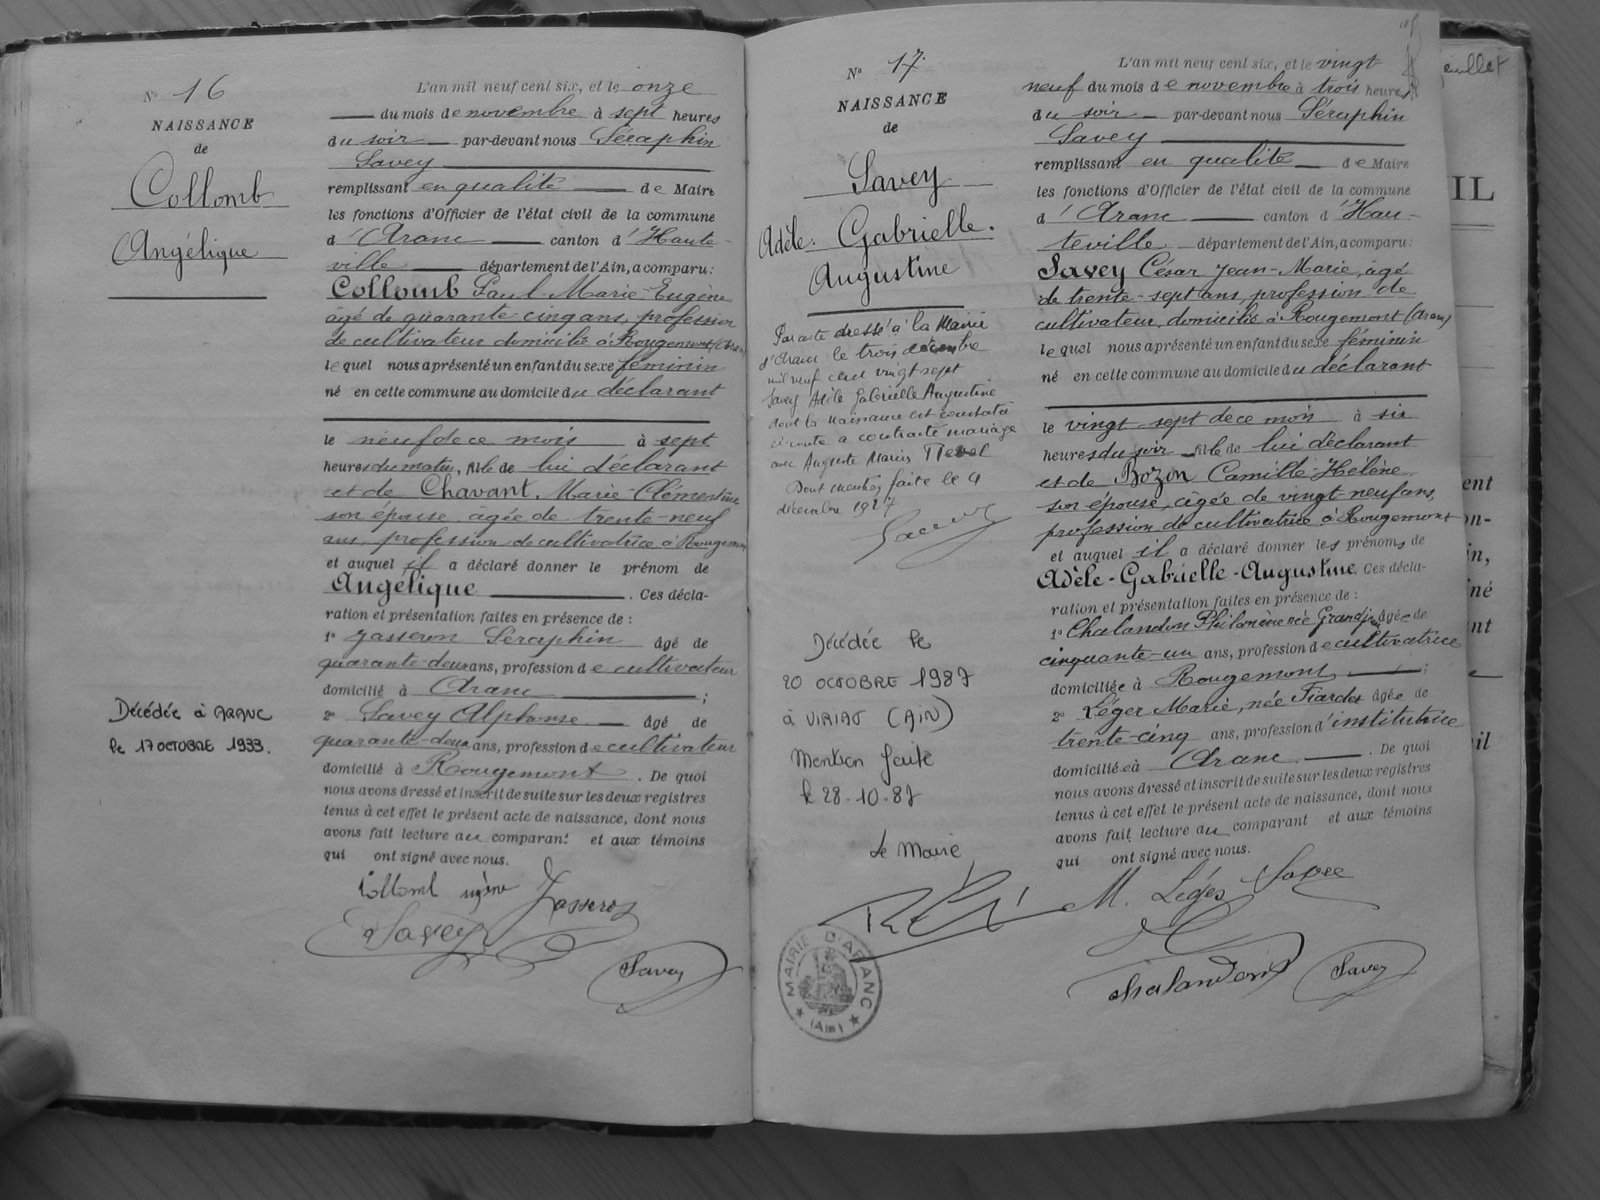 N° 16
NAISSANCE
de
Collomb
Angélique
Décédée à ARANC
le 17 OCTOBRE 1933.
L'an mil neuf cent six, et le onze
du mois de novembre à sept heures
du soir par-devant nous Séraphin
Savey
remplissant en qualité de Maire
les fonctions d'Officier de l'état civil de la commune
d'Aranc canton d'Haute-
ville département de l'Ain, a comparu:
Collomb Paul-Marie-Eugène
âgé de quarante-cinq ans, profession
de cultivateur domicilié à Rougemont (Aranc)
lequel nous a présenté un enfant du sexe féminin
né en cette commune au domicile du déclarant
le neuf de ce mois à sept
heures du matin, fille de lui déclarant
et de Chavant, Marie-Clémentine
son épouse, âgée de trente-neuf
ans, profession de cultivatrice à Rougemont
et auquel il a déclaré donner le prénom de
Angélique. Ces décla-
ration et présentation faites en présence de :
1° Jasseron Séraphin âgé de
quarante-deux ans, profession de cultivateur
domicilié à Aranc ;
2° Savey Alphonse âgé de
quarante-deux ans, profession de cultivateur
domicilié à Rougemont. De quoi
nous avons dressé et inscrit de suite sur les deux registres
tenus à cet effet le présent acte de naissance, dont nous
avons fait lecture au comparant et aux témoins
qui ont signé avec nous.
Collomb eugène Jasseron
Savey
Savey
N° 17.
NAISSANCE
de
Savey
Adèle. Gabrielle.
Augustine
Par acte dressé à la Mairie
d'Aranc le trois décembre
mil neuf cent vingt sept
Savey Adèle Gabrielle Augustine
dont la naissance est constatée
ci-contre a contracté mariage
avec Auguste Marius
Dont mention faite le 4
décembre 1927
Savey
Décédée le
20 OCTOBRE 1987
à VIRIAT (AIN)
Mention faite
le 28-10-87
Le Maire
MAIRIE D'ARANC
(Ain)
L'an mil neuf cent six, et le vingt
neuf du mois de novembre à trois heures
du soir par-devant nous Séraphin
Savey
remplissant en qualité de Maire
les fonctions d'Officier de l'état civil de la commune
d'Aranc canton d'Hau-
teville département de l'Ain, a comparu:
Savey César Jean-Marie, âgé
de trente-sept ans, profession de
cultivateur, domicilié à Rougemont (Aranc)
lequel nous a présenté un enfant du sexe féminin
né en cette commune au domicile du déclarant
le vingt sept de ce mois à six
heures du soir fille de lui déclarant
et de Bozon Camille-Hélène
son épouse, âgée de vingt-neuf ans,
profession de cultivatrice à Rougemont
et auquel il a déclaré donner les prénoms de
Adèle-Gabrielle-Augustine. Ces décla-
ration et présentation faites en présence de :
1° Chalandon Philomène née âgée de
cinquante-un ans, profession de cultivatrice
domiciliée à Rougemont ;
2° Léger Marie, née Tiardes âgée de
trente-cinq ans, profession d'institutrice
domiciliée à Aranc. De quoi
nous avons dressé et inscrit de suite sur les deux registres
tenus à cet effet le présent acte de naissance, dont nous
avons fait lecture au comparant et aux témoins
qui ont signé avec nous.
M. Léger Savey
Chalandon Savey
IL